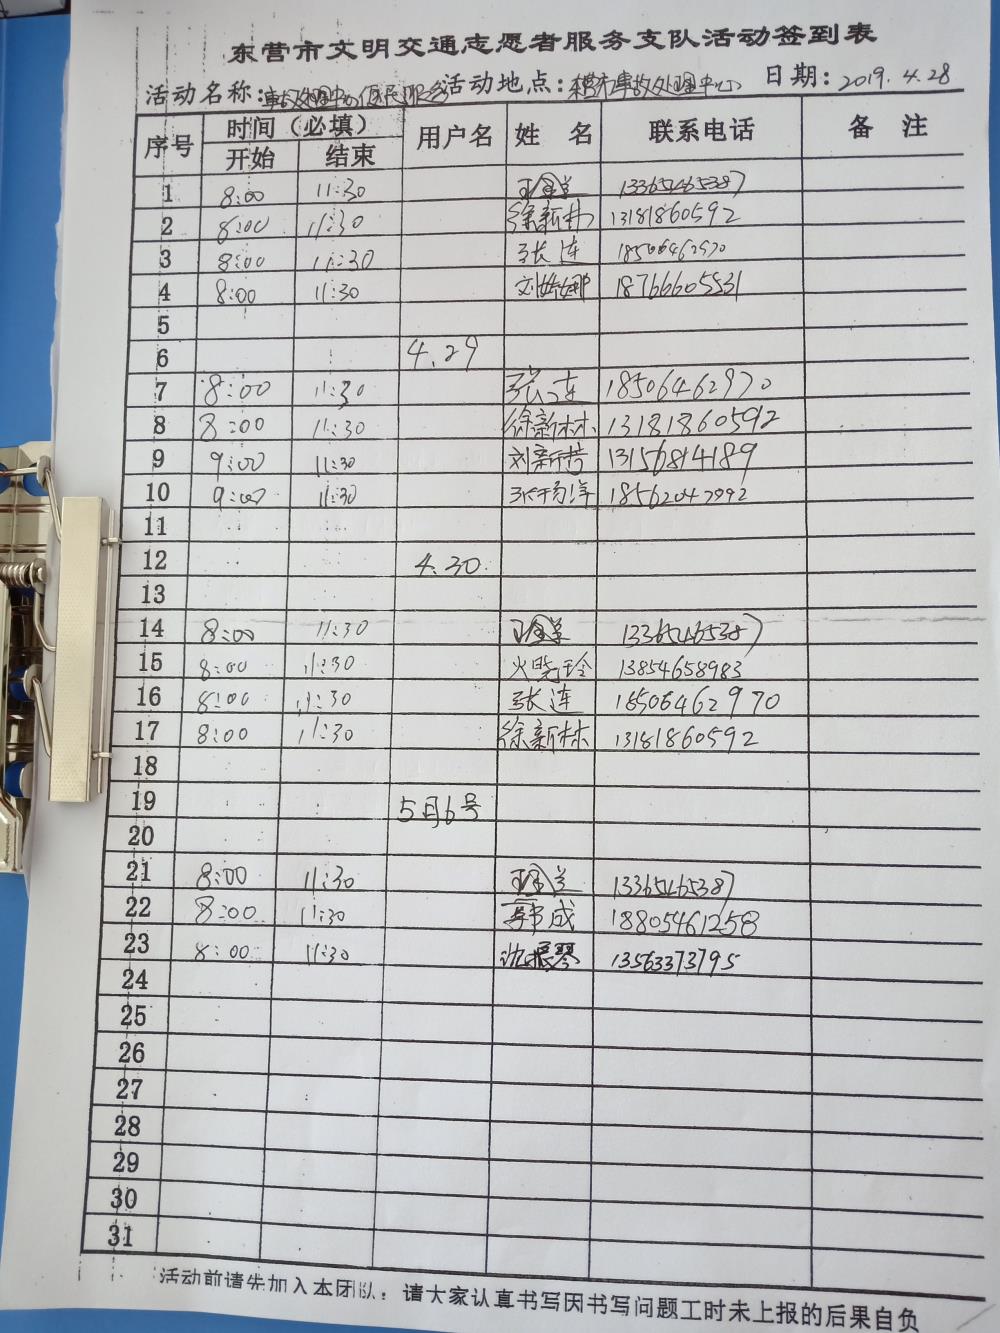 东营市文明交通志愿者服务支队活动签到表
活动名称:事故处理中心便民服务 活动地点:东营市事故处理中心 日期:2019.4.28
序号 时间(必填) 用户名 姓名 联系电话 备注
开始 结束
1 8:00 11:30 13365465387
2 8:00 11:30 徐新林 13181860592
3 8:00 11:30 张连 18506462970
4 8:00 11:30 刘娜 18766605531
5
6 4.29
7 8:00 11:30 张连 18506462970
8 8:00 11:30 徐新林 13181860592
9 9:00 11:30 刘新 13156814189
10 9:00 11:30 18562047992
11
12 4.30
13
14 8:00 11:30 13365465387
15 8:00 11:30 13854658983
16 8:00 11:30 张连 18506462970
17 8:00 11:30 徐新林 13181860592
18
19 5月6号
20
21 8:00 11:30 13365465387
22 8:00 11:30 韩成 18805461258
23 8:00 11:30 13563373795
24
25
26
27
28
29
30
31
活动前请先加入本团队,请大家认真书写因书写问题工时未上报的后果自负